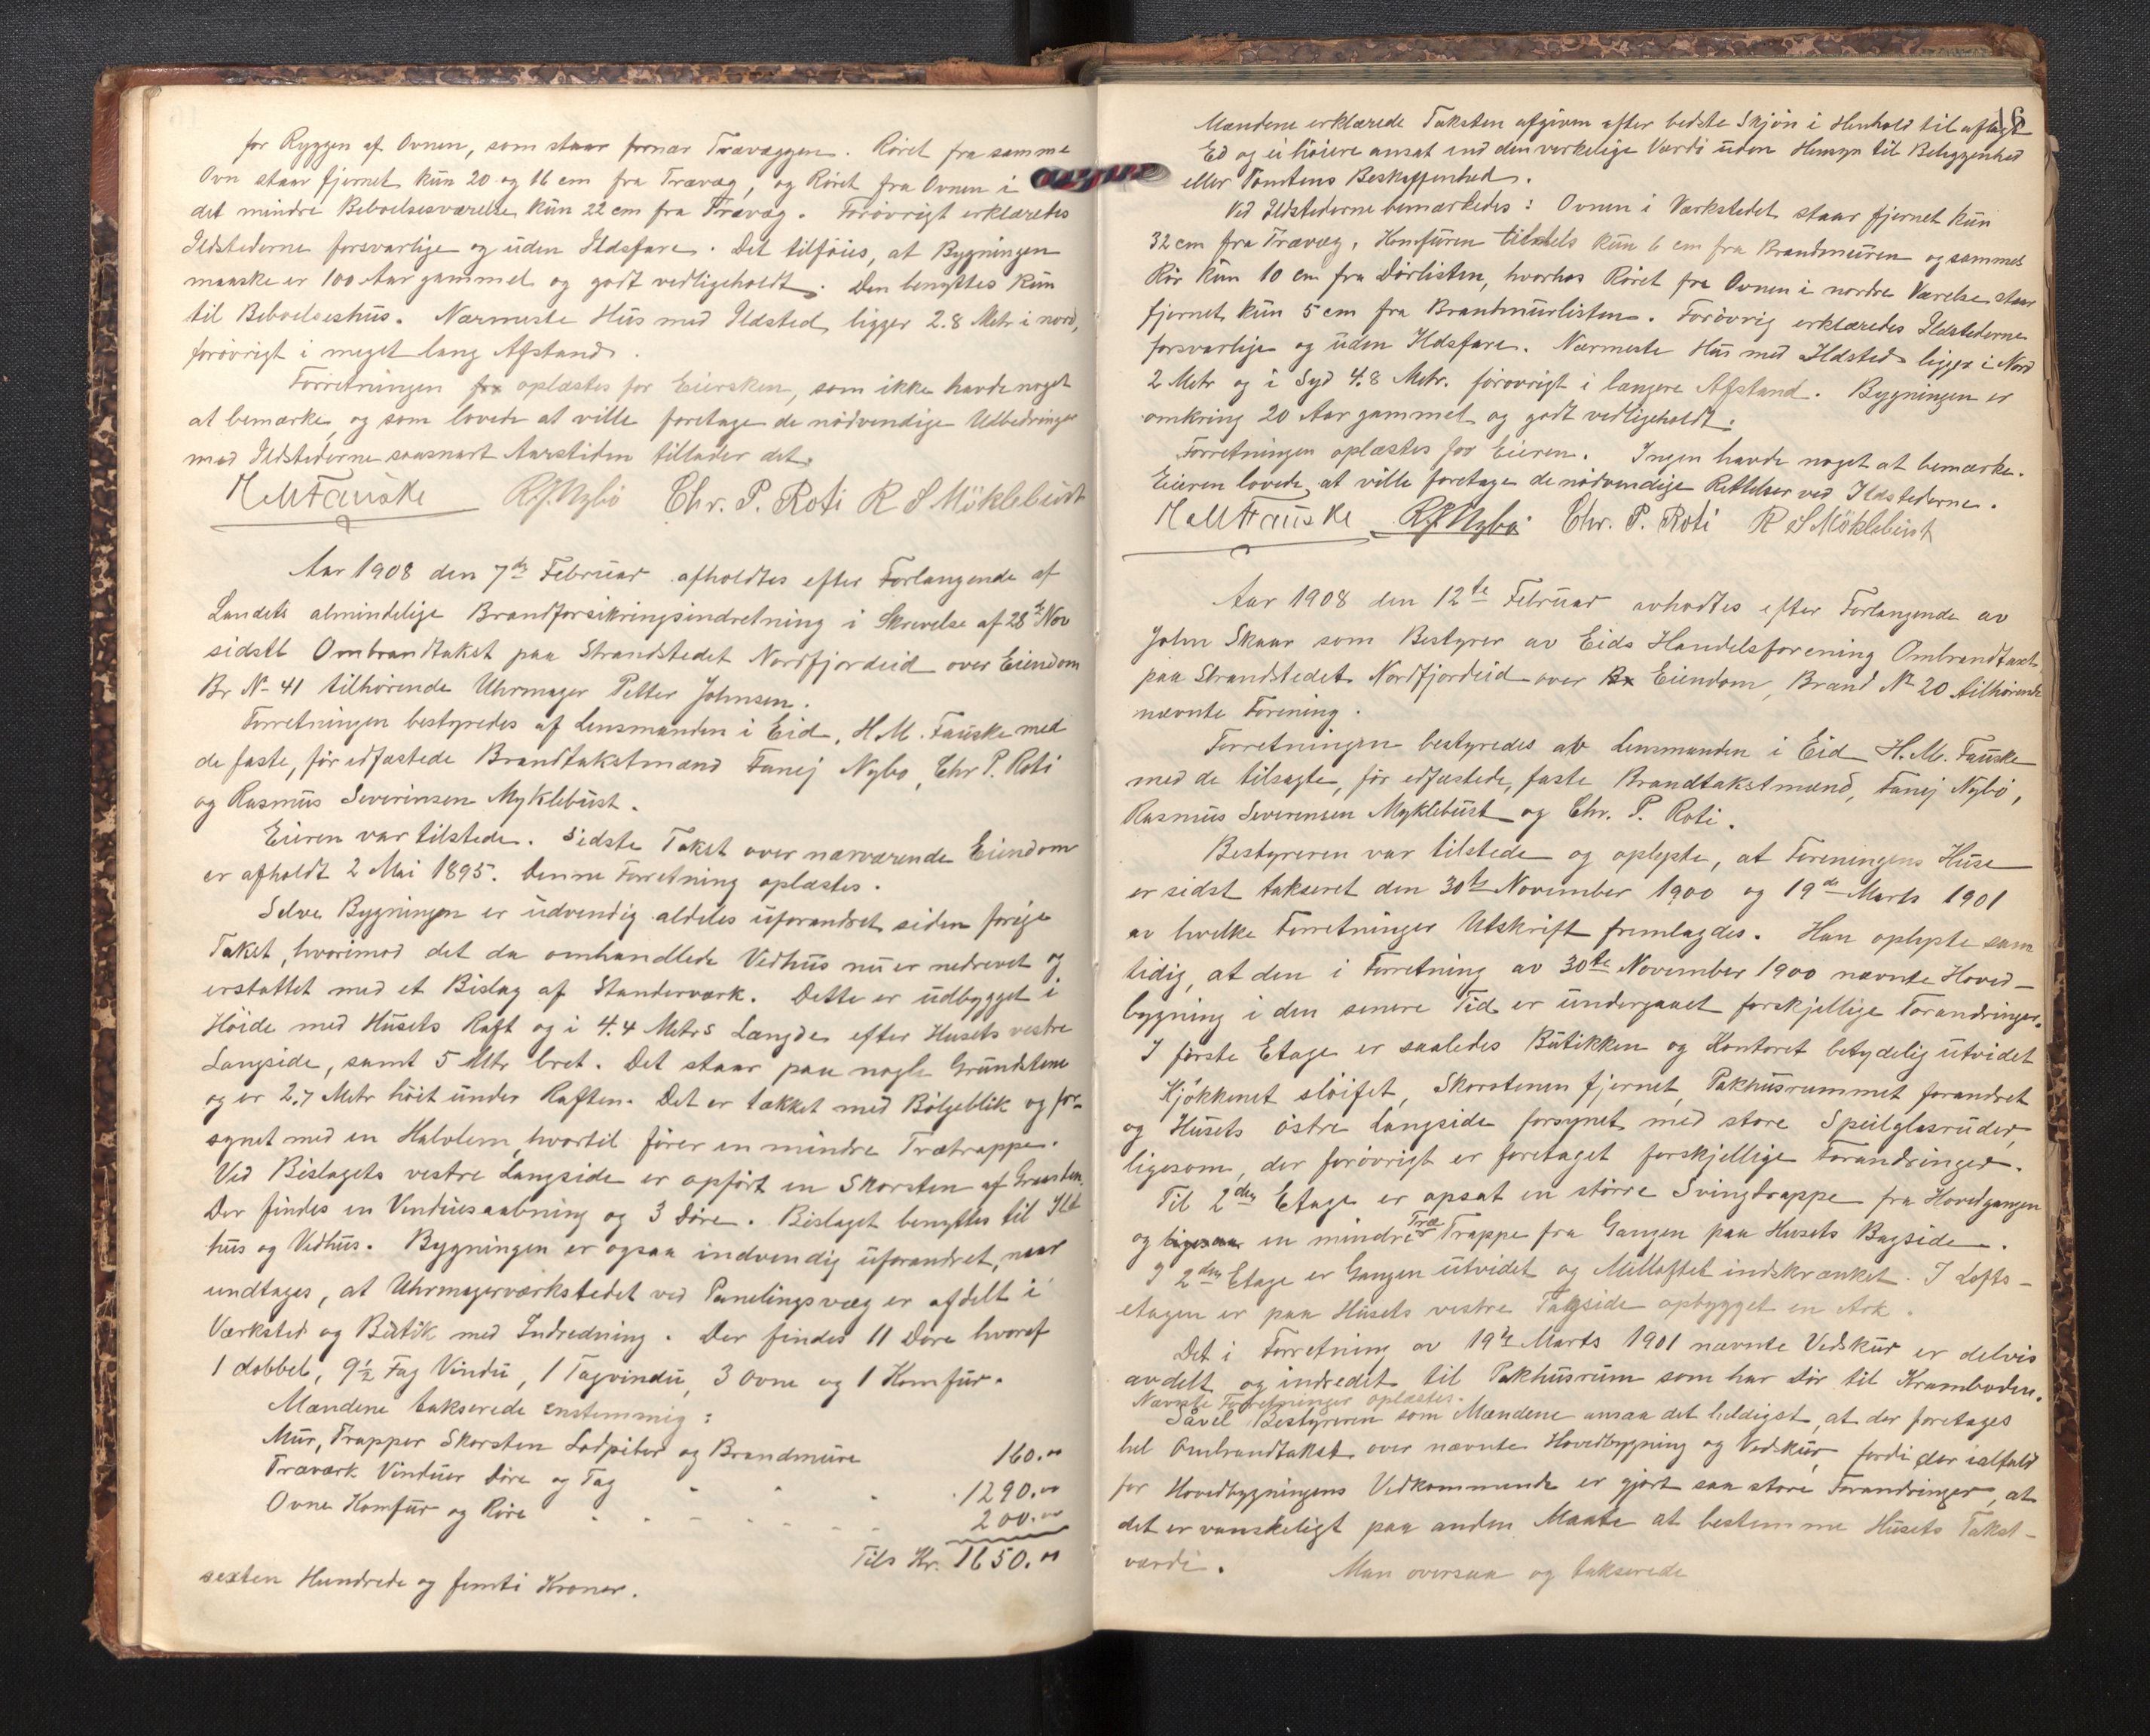 for Ryggen af Ovnen, som staar fornær Trævæggen. Røret fra samme
Ovn staar fjernet kun 20 og 16 cm fra Trævæg, og Røret fra Ovnen i
det mindre Beboelsesværelse kun 22 cm fra Trævæg. Forøvrigt erklæredes
Ildstederne forsvarlige og uden Ildsfare. Det tilføies, at Bygningen
maaske er 100 Aar gammel og godt vedligeholdt. Den benyttes kun
til Beboelseshus. Nærmeste Hus med Ildsted ligger 2.8 Metr i nord,
forøvrigt i meget lang Afstand.
Forretningen oplæstes for Eiersken, som ikke havde noget
at bemærke, og som lovede at ville foretage de nødvendige Udbedringer
med Ildstederne saasnart Aarstiden tillader det.
H M Fauske R.J. Nybø Chr. P. Roti R S Möklebust
Aar 1908 den 7de Februar afholdtes efter Forlangende af
Landets almindelige Brandforsikringsindretning i Skrivelse af 28de Nov
sidstl Ombrandtakst paa Strandstedet Nordfjordeid over Eiendom
Br No 41 tilhørende Uhrmager Petter Johnsen.
Forretningen bestyredes af Lensmanden i Eid, H.M. Fauske med
de faste, før edfæstede Brandtakstmænd Fanej Nybø, Chr P. Roti
og Rasmus Severinsen Myklebust.
Eieren var tilstede. Sidste Takst over nærværende Eiendom
er afholdt 2 Mai 1895. Denne Forretning oplæstes.
Selve Bygningen er udvendig aldeles uforandret siden forige
Takst, hvorimod det da omhandlede Vedhus nu er nedrevet og
erstattet med et Bislag af Standerværk. Dette er udbygget i
Høide med Husets Raft og i 4.4 Metrs Længde efter Husets vestre
Langside, samt 5 Mtr bret. Det staar paa nogle Grundstene
og er 2.7 Metr høit under Raften. Det er tækket med Bølgeblik og for-
synet med en Halvlem, hvortil fører en mindre Trætrappe.
Ved Bislagets vestre Langside er opført en Skorsten af Graasten.
Der findes en Vinduesaabning og 3 Døre. Bislaget benyttes til Ild
hus og Vedhus. Bygningen er ogsaa indvendig uforandret, naar
undtages, at Uhrmagerværkstedet ved Panelingsvæg er afdelt i
Værksted og Butik med Indredning. Der findes 11 Døre hvoraf
1 dobbel, 9½ Fag Vindu, 1 Tagvindu, 3 Ovne og 1 Komfur.
Mændene takserede enstemmig:
Mur, Trapper Skorsten Lodpiber og Brandmure 160.00
Træværk Vinduer Døre og Tag - - - 1290.00
Ovne Komfur og Røre - - - - - - 200.00
Tils Kr. 1650.00
sexten Hundrede og femti Kroner.
16
Mændene erklærede Taksten afgiven efter bedste Skjøn i Henhold til aflagt
Ed og ei høiere ansat end den verkelige Værdi uden Hensyn til Beliggenhed
eller Tomtens Beskaffenhed.
Ved Ildstederne bemærkedes: Ovnen i Værkstedet staar fjernet kun
32 cm fra Trævæg, Komfuren tildels kun 6 cm fra Brandmuren og sammes
Rør kun 10 cm fra Dørlisten, hvorhos Røret fra Ovnen i nordre Værelse staar
fjernet kun 5 cm fra Brandmurlisten. Forøvrig erklæredes Ildstederne
forsvarlige og uden Ildsfare. Nærmeste Hus med Ildsted ligger i Nord
2 Metr og i Syd 4.8 Metr. forøvrigt i længere Afstand. Bygningen er
omkring 20 Aar gammel og godt vedligeholdt.
Forretningen oplæstes for Eieren. Ingen havde noget at bemærke.
Eieren lovede at ville foretage de nødvendige Rettelser ved Ildstederne.
H M Fauske R.J. Nybø Chr. P. Roti R S Möklebust
Aar 1908 den 12te Februar avhodtes efter Forlangende av
John Skaar som Bestyrer av Eids Handelsforening Ombrandtaxt
paa Strandstedet Nordfjordeid over Br Eiendom, Brand No 20 tilhørende
nævnte Forening.
Forretningen bestyredes av Lensmanden i Eid H.M. Fauske
med de tilsagte, før edfæstede, faste Brandtakstmænd, Fanej Nybø,
Rasmus Severensen Myklebust og Chr. P. Roti.
Bestyreren var tilstede og oplyste, at Foreningens Huse
er sidst takseret den 30te November 1900 og 19de Marts 1901
av hvelke Forretninger Utskrift fremlagdes. Han oplyste sam
tidig, at den i Forretning av 30te November 1900 nævnte Hoved-
bygning i den senere Tid er undergaaet forskjellige Forandringer.
I første Etage er saaledes Butikken og Kontoret betydelig utvidet
Kjøkkenet sløifet, Skorstenen fjernet, Pakhusrummet forandret
og Husets østre Langside forsynet med store Speilglasruder,
ligesom der forøvrigt er foretaget forskjellige Forandringer.
Til 2den Etage er opsat en større Svingtrappe fra Hovedgangen
og ligesaa en mindre Træ Trappe fra Gangen paa Husets Bagside.
I 2den Etage er Gangen utvidet og Mølloftet indskrænket. I Lofts-
etagen er paa Husets vestre Tagside opbygget en Ark.
Det i Forretning av 19de Marts 1901 nævnte Vedskur er delvis
avdelt og indredet til Pakhusrum som har Dør til Kramboden.
Nævnte Forretninger oplæstes.
Såvel Bestyreren som Mændene ansaa det heldigst, at der foretages
hel Ombrandtakst over nævnte Hovedbygning og Vedskur, fordi der ialfald
for Hovedbygningens Vedkommende er gjort saa store Forandringer, at
det er vanskeligt paa anden Maate at bestemme Husets Takst-
værdi. Man oversaa og takserede